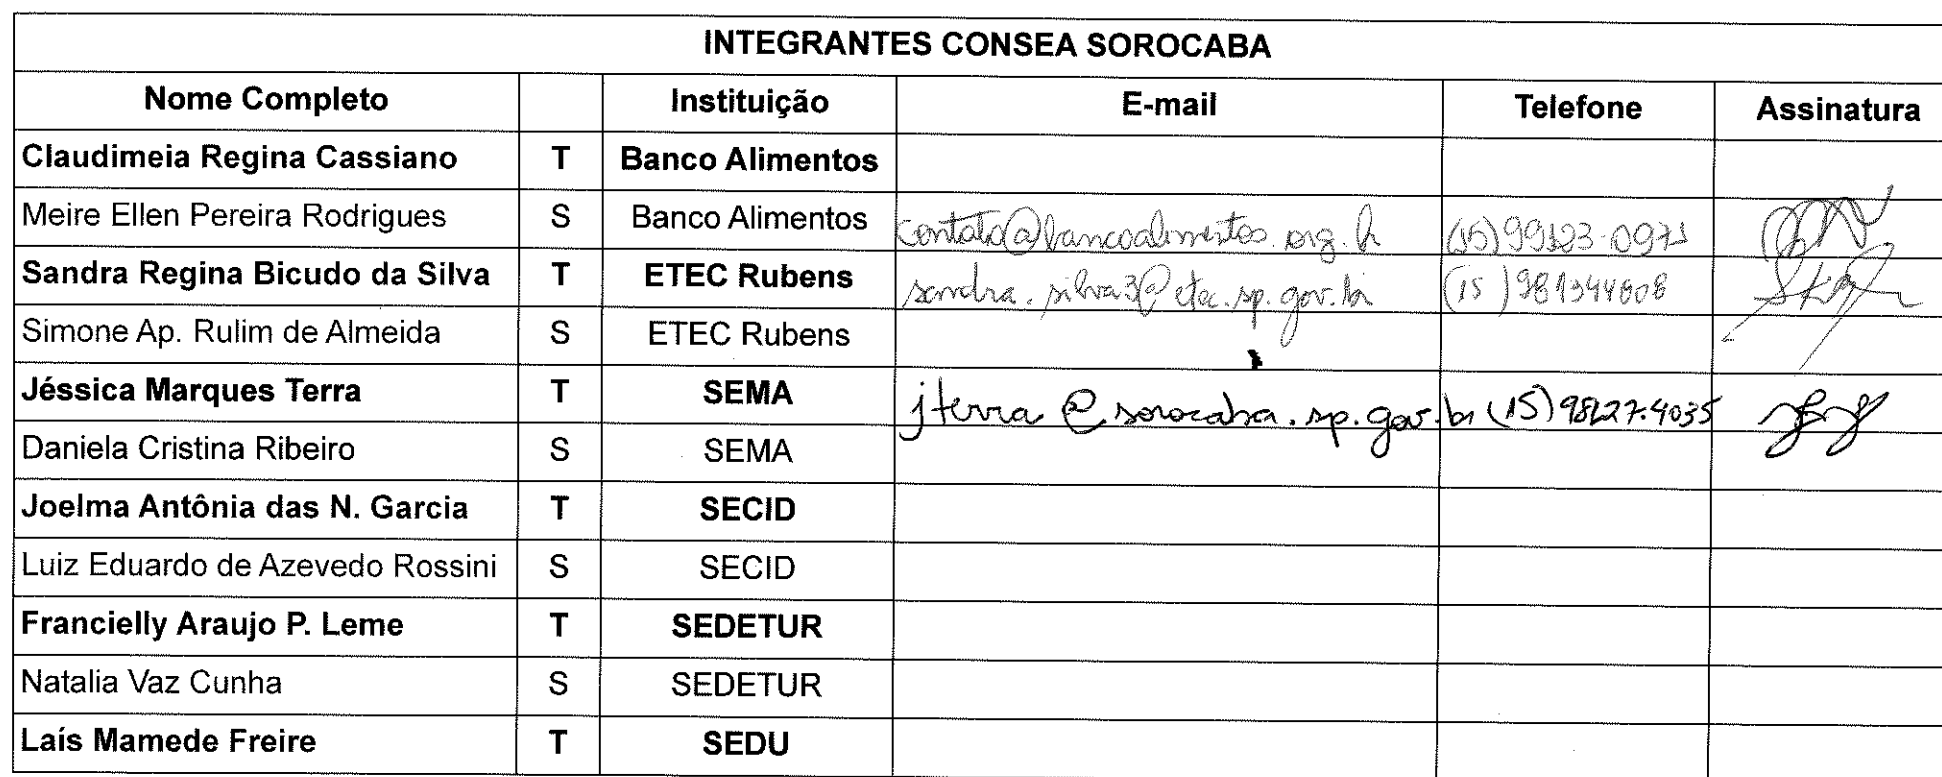 INTEGRANTES CONSEA SOROCABA
Nome Completo Instituição E-mail Telefone Assinatura
Claudimeia Regina Cassiano T Banco Alimentos
Meire Ellen Pereira Rodrigues S Banco Alimentos contato@bancoalimentos.org.br (15)99123-0971
Sandra Regina Bicudo da Silva T ETEC Rubens sandra.silva3@etec.sp.gov.br (15)981344808
Simone Ap. Rulim de Almeida S ETEC Rubens
Jéssica Marques Terra T SEMA jterra@sorocaba.sp.gov.br (15)98127.4035
Daniela Cristina Ribeiro S SEMA
Joelma Antônia das N. Garcia T SECID
Luiz Eduardo de Azevedo Rossini S SECID
Francielly Araujo P. Leme T SEDETUR
Natalia Vaz Cunha S SEDETUR
Laís Mamede Freire T SEDU